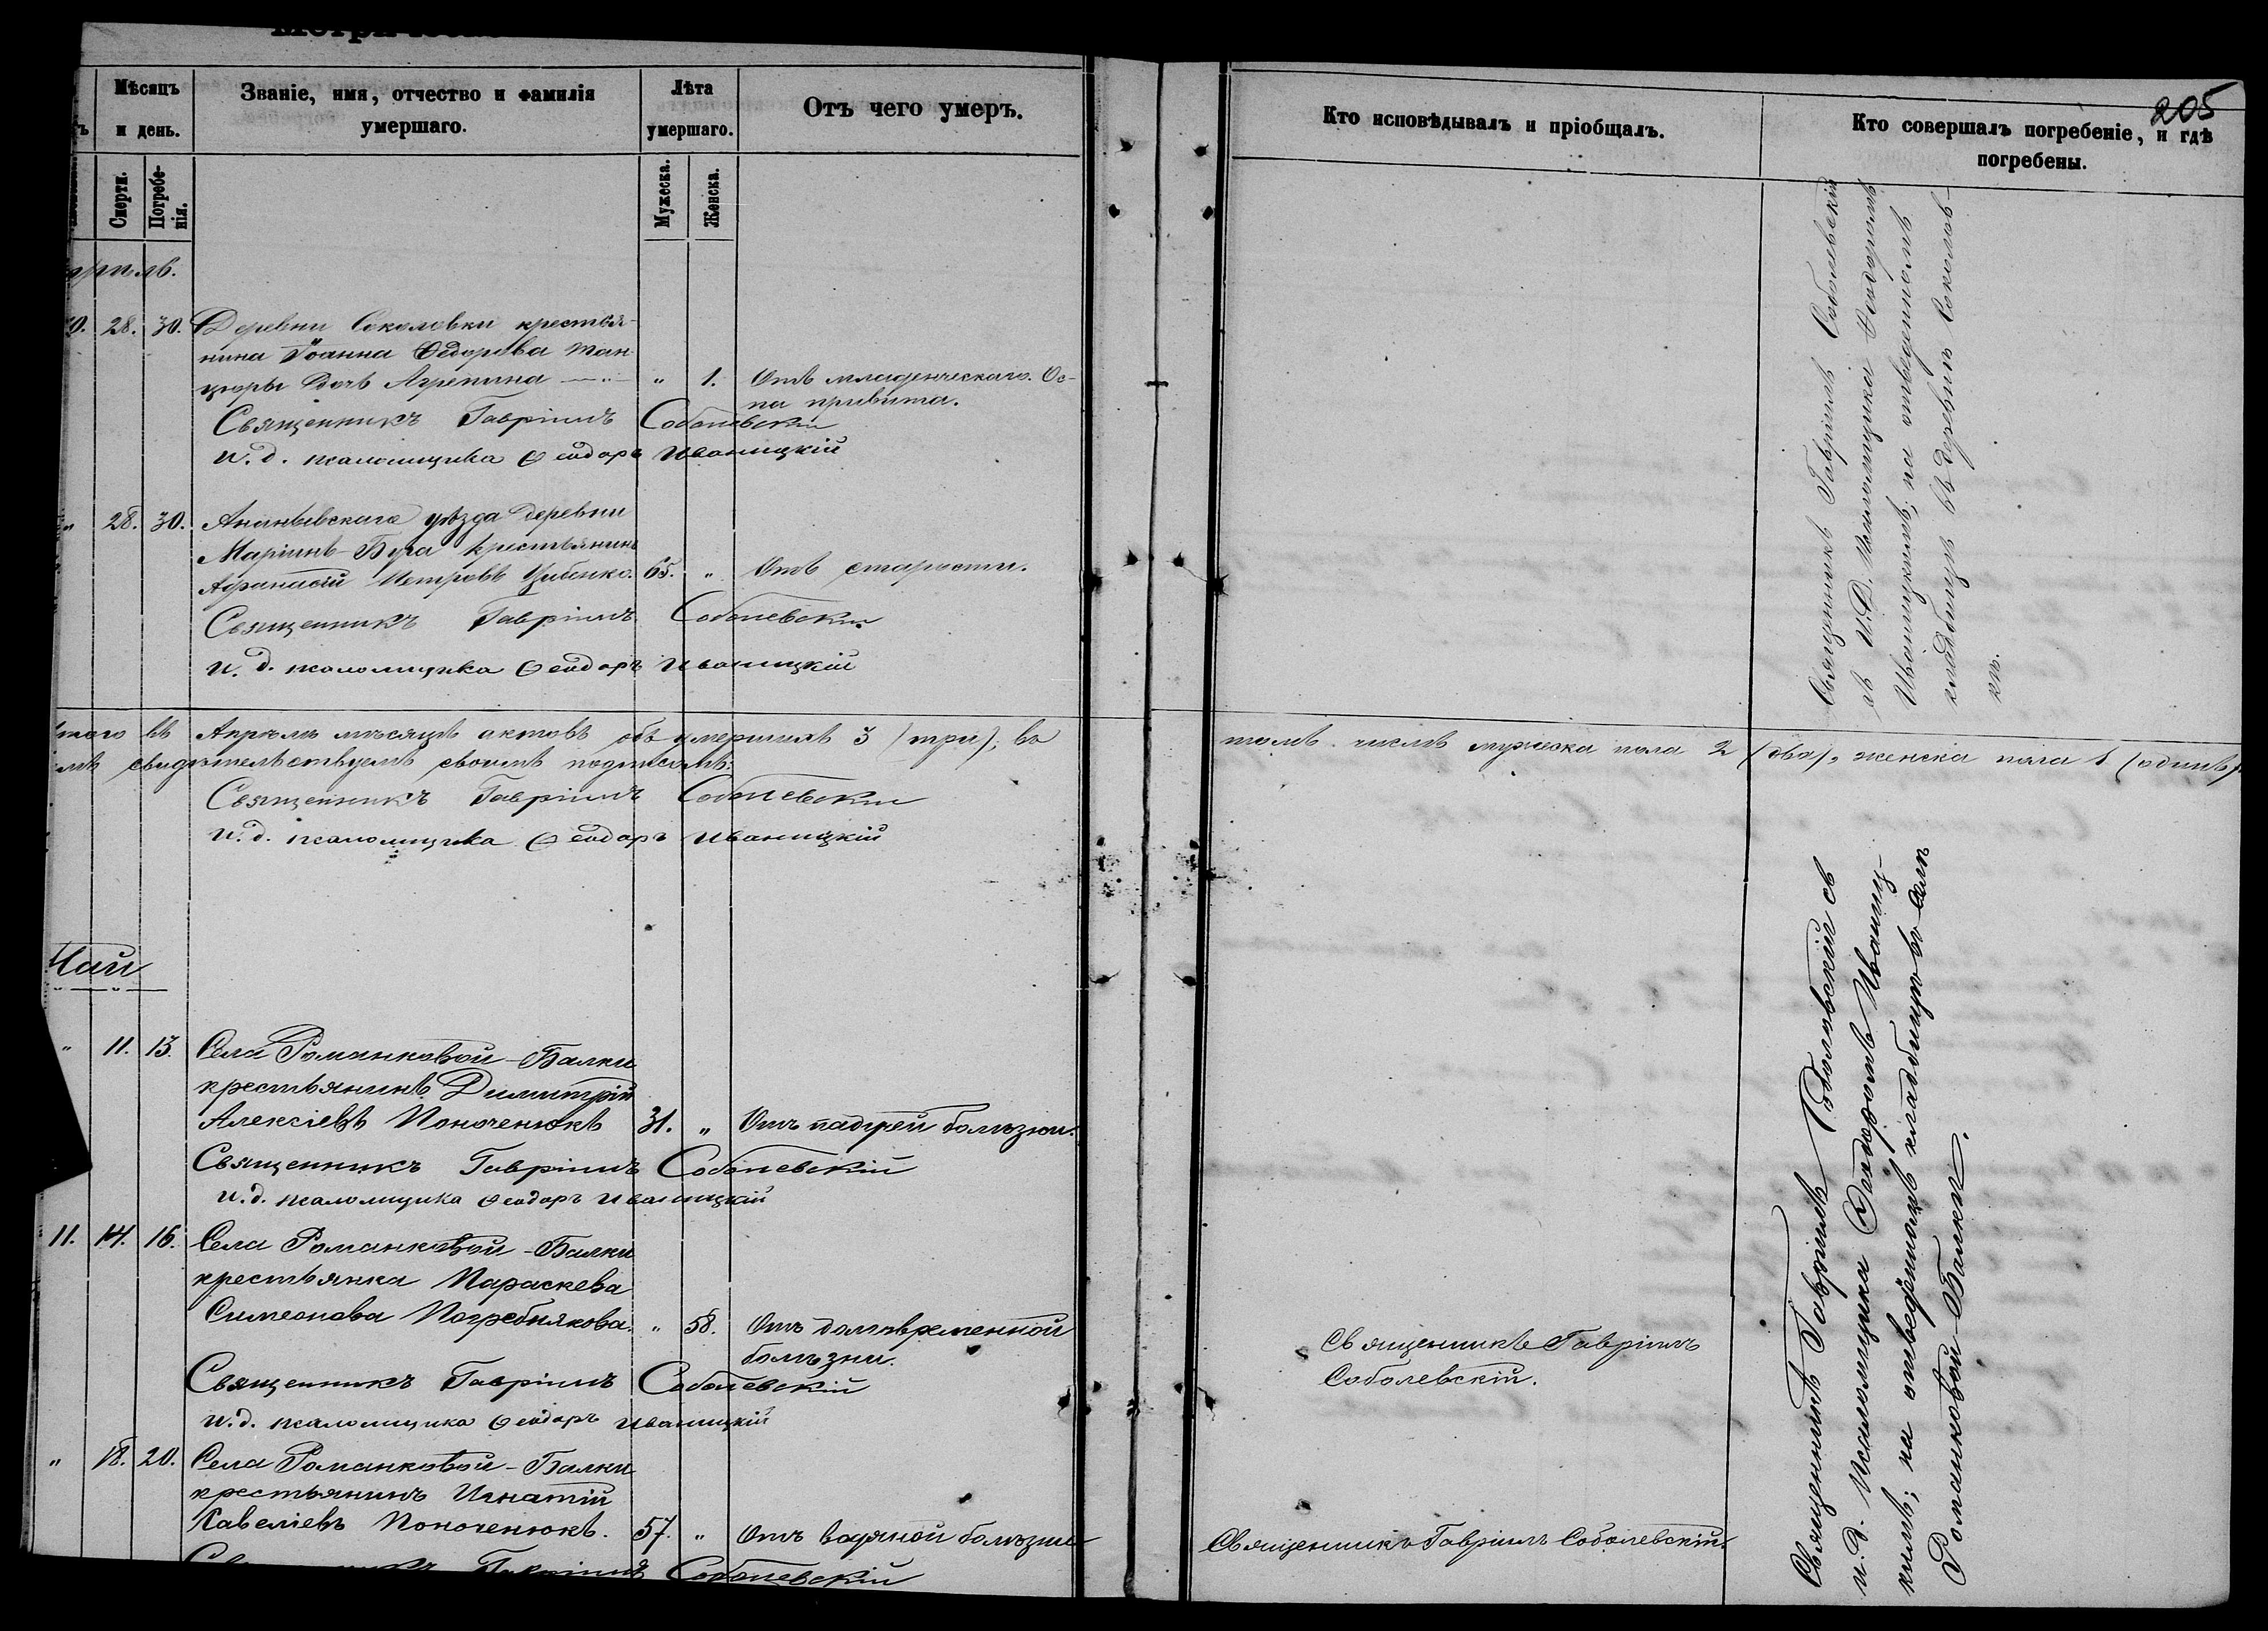 205
Мѣсяцъ и день.
Званіе, имя, отчество и фамилія умершаго.
Лѣта умершаго.
Отъ чего умеръ.
Кто исповѣдывалъ и пріобщалъ.
Кто совершалъ погребеніе, и гдѣ погребены.
Смерти.
Погребенія.
Мужеска.
Женска.
28. 30. Деревни Соколовки крестья-
нина Іоанна Ѳедорова
дочь Агрепина — " — " 1. Отъ младенческаго. Ос-
па привита.
Священникъ Гавріилъ Соболевскій
и. д. псаломщика Ѳеодоръ Иваницкій
" 28. 30. Ананьевскаго уѣзда деревни
Маріинъ-Буга крестьянинъ
Афанасій Петровъ Цибенко. 65. " Отъ старости.
Священникъ Гавріилъ Соболевскій
и. д. псаломщика Ѳеодоръ Иваницкій
Священникъ Гавріилъ Соболевскій
съ И. Д. Псаломщика Ѳеодоромъ
Иваницкимъ, на отведенномъ
кладбищѣ въ деревнѣ Соколов-
кѣ.
въ Апрѣлѣ мѣсяцѣ актовъ объ умершихъ 3 (три), въ томъ числѣ мужеска пола 2 (два), женска пола 1 (одинъ)
свидѣтельствуемъ своимъ подписомъ:
Священникъ Гавріилъ Соболевскій
и. д. псаломщика Ѳеодоръ Иваницкій
Май
" 11. 13. Села Романковой-Балки
крестьянинъ Димитрій
Алексіевъ Поноченюкъ 31. " Отъ падучей болѣзни.
Священникъ Гавріилъ Соболевскій
и. д. псаломщика Ѳеодоръ Иваницкій
11. 14. 16. Села Романковой-Балки
крестьянка Параскева
Симеонова Погребнякова. " 58. Отъ долговременной
болѣзни.
Священникъ Гавріилъ
Соболевскій.
Священникъ Гавріилъ Соболевскій
и. д. псаломщика Ѳеодоръ Иваницкій
" 18. 20. Села Романковой-Балки
крестьянинъ Игнатій
Савеліевъ Поноченюкъ. 57. " Отъ водяной болѣзни
Священникъ Гавріилъ Соболевскій.
Священникъ Гавріилъ Соболевскій
Священникъ Гавріилъ Соболевскій съ
и. д. Псаломщика Ѳеодоромъ Иваниц-
кимъ; на отведенномъ кладбищѣ въ селѣ
Романковой-Балкѣ.